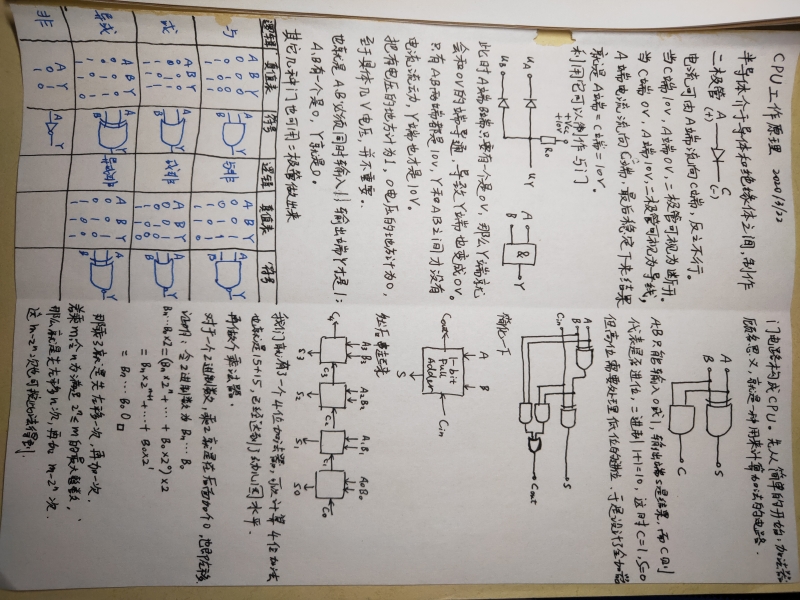 CPU工作原理 2020/3/22
半导体介于导体和绝缘体之间,制作
二极管 A (+) C (-)
电流可由A端流向C端,反之不行。
当C端10V,A端0V,二极管可视为断开。
当C端0V,A端10V,二极管可视为导线,
A端电流流向C端,最后稳定下来结果
就是A端=C端=10V。
利用它可以制作与门
+Vcc
+10V
R0
uA
uY
uB
A
B
&
Y
此时A端B端只要有一个是0V,那么Y端就
会和0V的端导通,导致Y端也变成0V。
只有AB两端都是10V,Y和AB之间才没有
电流流动,Y端也才是10V。
把有电压的地方计为1,0电压的地方计为0,
至于具体几V电压,并不重要。
也就是AB必须同时输入1,输出端Y才是1;
A,B有一个是0,Y就是0。
其它几种门也可用二极管做出来
逻辑 真值表 符号 逻辑 真值表 符号
与 A B Y A B Y 与非 A B Y A B Y
0 0 0 0 0 1
0 1 0 0 1 1
1 0 0 1 0 1
1 1 1 1 1 0
或 A B Y A B Y 或非 A B Y A B Y
0 0 0 0 0 1
0 1 1 0 1 0
1 0 1 1 0 0
1 1 1 1 1 0
异或 A B Y A B Y 异或非 A B Y A B Y
0 0 0 0 0 1
0 1 1 0 1 0
1 0 1 1 0 0
1 1 0 1 1 1
非 A Y A Y
0 1
1 0
门电路构成CPU。先从简单的开始:加法器
顾名思义,就是一种用来计算加法的电路.
A
B
S
C
A,B只能输入0或1,输出端S是结果,而C则
代表是否进位,二进制1+1=10,这时C=1,S=0
但高位需要处理低位的进位.于是设计了全加器
A
B
Cin
S
Cout
简化一下
A B
Cout 1-bit Full Adder Cin
S
然后串起来
A3 B3 A2 B2 A1 B1 A0 B0
C4 C3 C2 C1 C0
S3 S2 S1 S0
我们就有了一个4位加法器,可以计算4位加法
也就是15+15,已经达到了幼儿园水平.
再做个乘法器.
对于一个2进制数,乘2就是在后面加个0,也即左移.
证明:令2进制数为Bn…B0
Bn…B0×2=(Bn×2ⁿ+…+B0×2⁰)×2
=Bn×2ⁿ⁺¹+…+B0×2¹
=Bn…B0 0 □
那乘3就是先左移一次,再加一次.
若乘m,令n为满足2ⁿ≤m的最大整数,
那么就是先左移n次,再加m-2ⁿ次.
这m-2ⁿ次也可按此法得到.